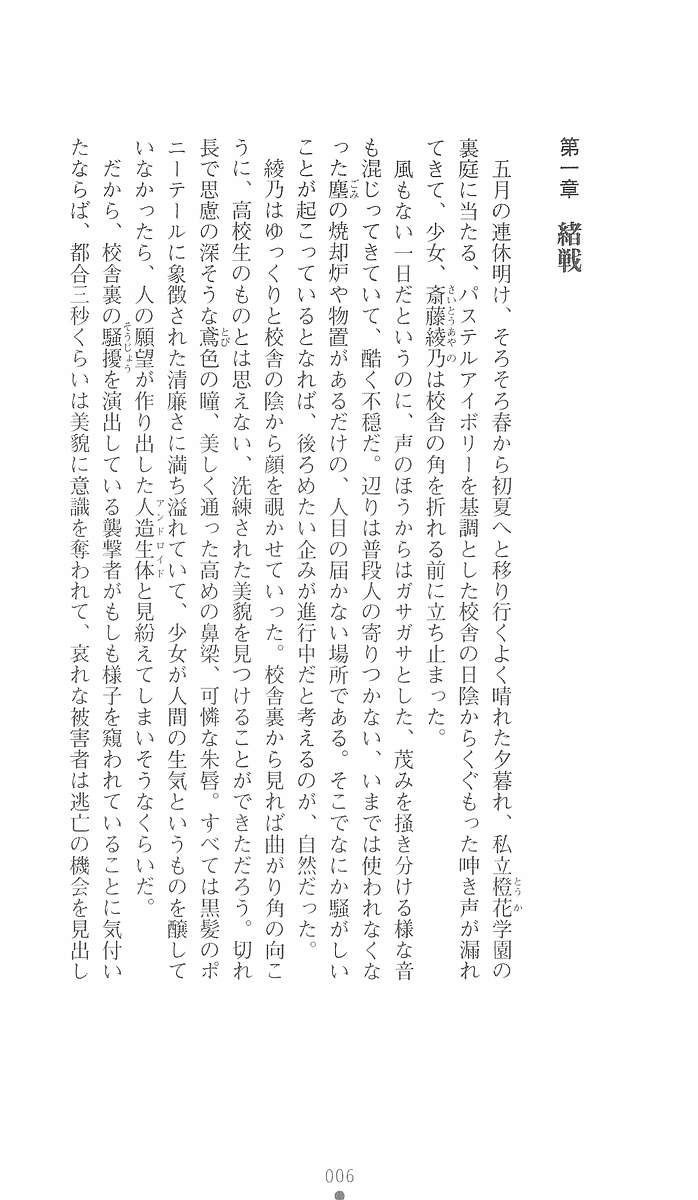 第一章　緒戦
　五月の連休明け、そろそろ春から初夏へと移り行くよく晴れた夕暮れ、私立橙花学園の
裏庭に当たる、パステルアイボリーを基調とした校舎の日陰からくぐもった呻き声が漏れ
てきて、少女、斎藤綾乃は校舎の角を折れる前に立ち止まった。
　風もない一日だというのに、声のほうからはガサガサとした、茂みを掻き分ける様な音
も混じってきていて、酷く不穏だ。辺りは普段人の寄りつかない、いまでは使われなくな
った塵の焼却炉や物置があるだけの、人目の届かない場所である。そこでなにか騒がしい
ことが起こっているとなれば、後ろめたい企みが進行中だと考えるのが、自然だった。
　綾乃はゆっくりと校舎の陰から顔を覗かせていった。校舎裏から見れば曲がり角の向こ
うに、高校生のものとは思えない、洗練された美貌を見つけることができただろう。切れ
長で思慮の深そうな鳶色の瞳、美しく通った高めの鼻梁、可憐な朱唇。すべては黒髪のポ
ニーテールに象徴された清廉さに満ち溢れていて、少女が人間の生気というものを醸して
いなかったら、人の願望が作り出した人造生体と見紛えてしまいそうなくらいだ。
　だから、校舎裏の騒擾を演出している襲撃者がもしも様子を窺われていることに気付い
たならば、都合三秒くらいは美貌に意識を奪われて、哀れな被害者は逃亡の機会を見出し
とうか
さいとうあやの
ごみ
とび
アンドロイド
そうじょう
006